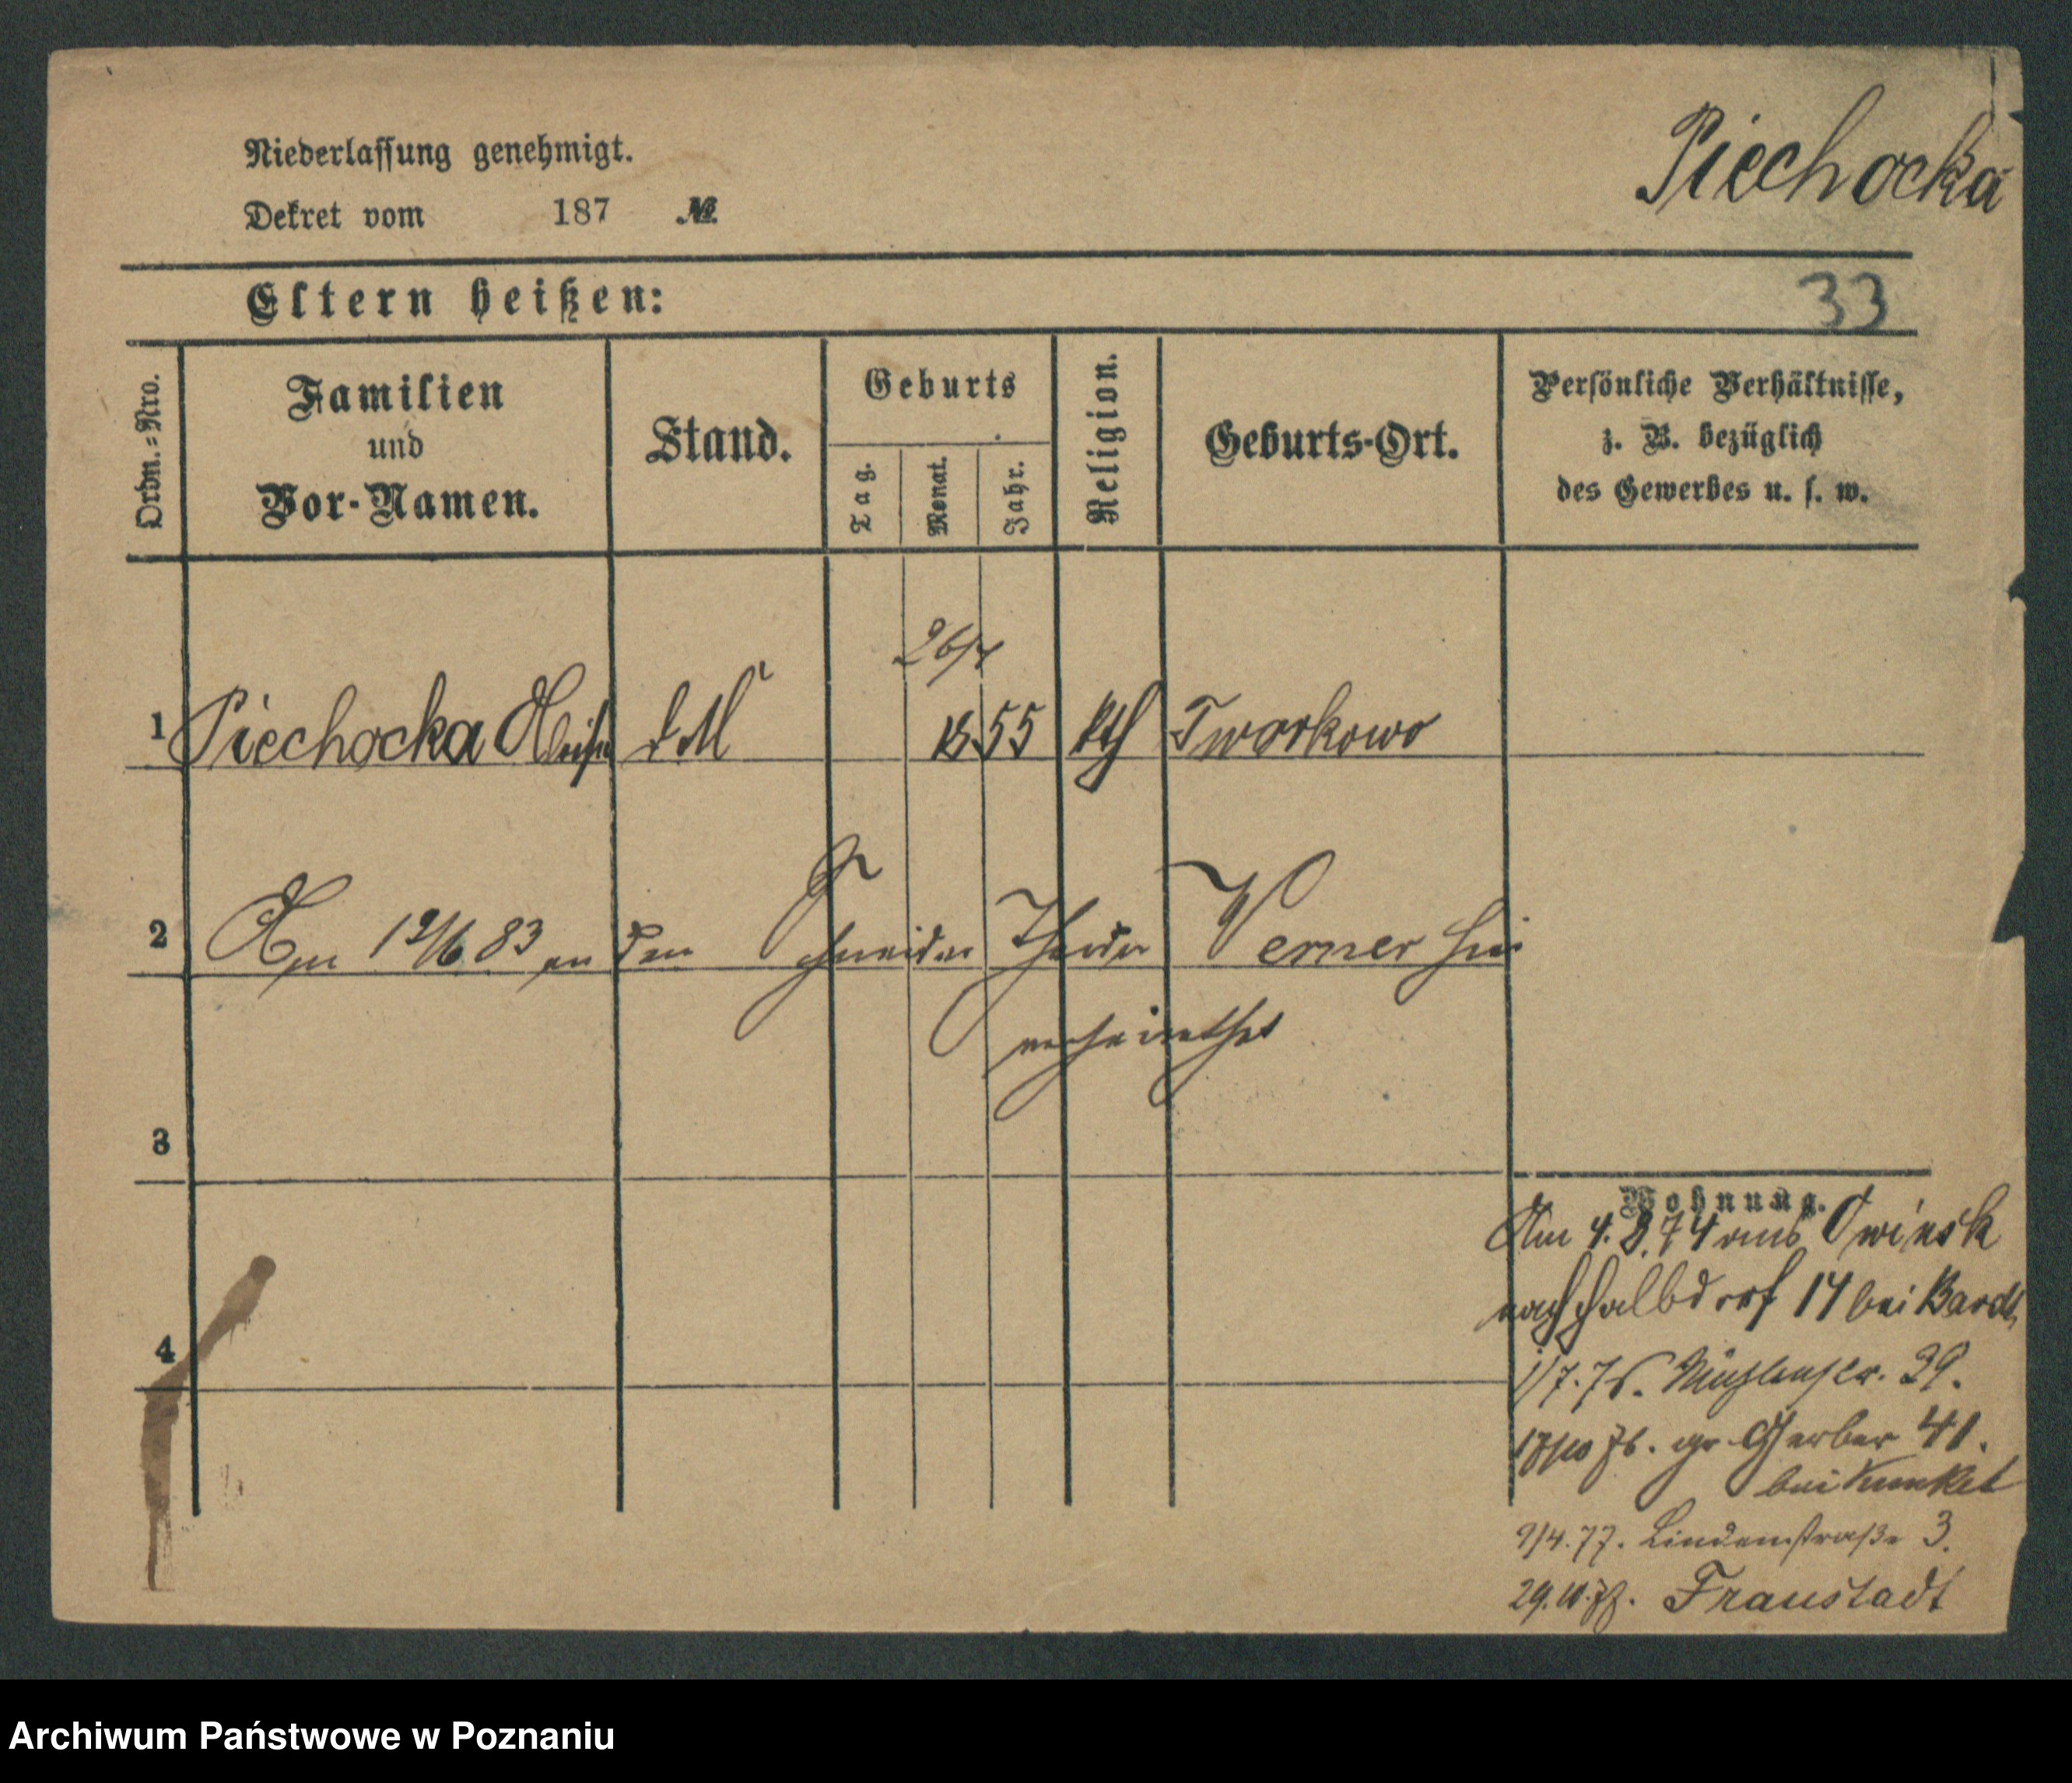 Piechocka
Niederlassung genehmigt.
Dekret vom 187 №
Eltern heißen:
33
Ordn.=Nro.
Familien
und
Vor-Namen.
Stand.
Geburts
Tag.
Monat.
Jahr.
Religion.
Geburts-Ort.
Persönliche Verhältnisse,
z. B. bezüglich
des Gewerbes u. s. w.
26/7
1 Piechocka d M 1855 kth Tworkowo
2 Am 19/6 83 an den Schneider Theodor Werner hier
verheirathet
3
4
Wohnung.
Am 4.8.74 aus Owinsk
nach Halbdorf 17 bei Bardt,
1/7.75. Mühlenstr. 29.
17/10 76. gr Gerber 41.
bei Kunkel
9/4.77. Lindenstraße 3.
Fraustadt
Archiwum Państwowe w Poznaniu